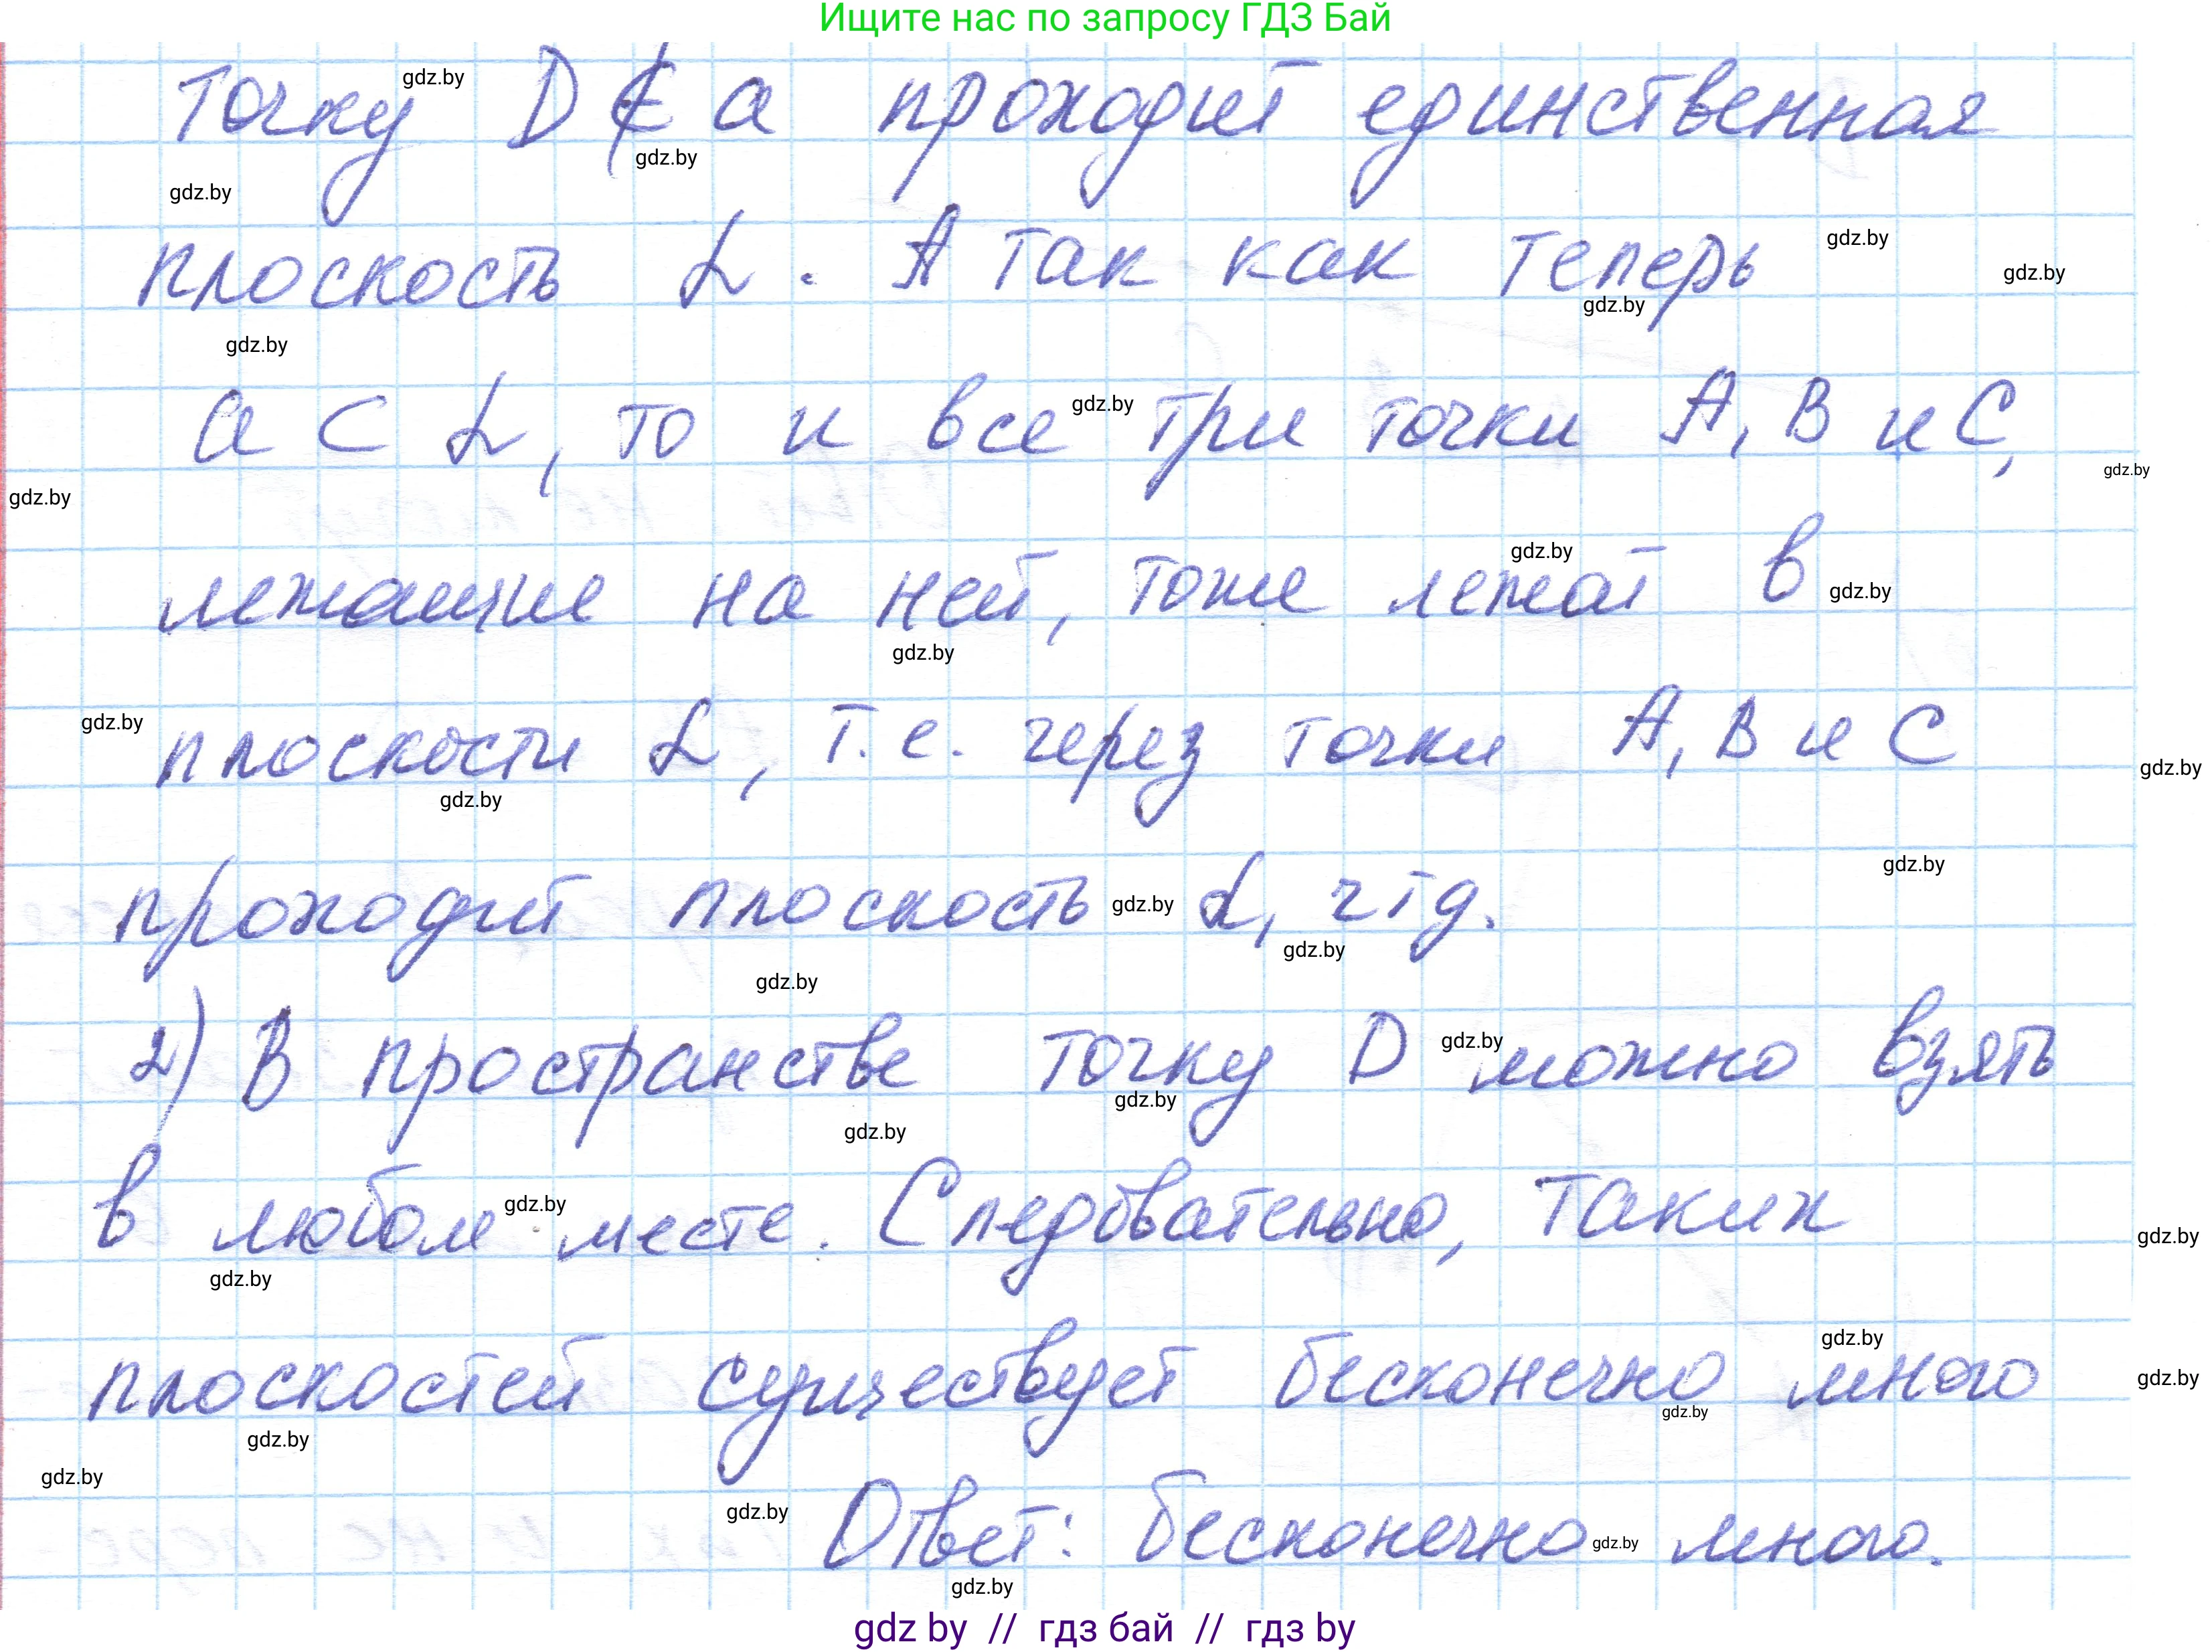 Ищите нас по запросу ГДЗ Бай
точку D ∉ a проходит единственная
плоскость α. А так как теперь
a ⊂ α, то и все три точки А, В и С,
лежащие на ней, тоже лежат в
плоскости α, т.е. через точки А, В и С
проходит плоскость α, чтд.
2) В пространстве точку D можно взять
в любом месте. Следовательно, таких
плоскостей существует бесконечно много
Ответ: бесконечно много.
gdz by // гдз бай // гдз by